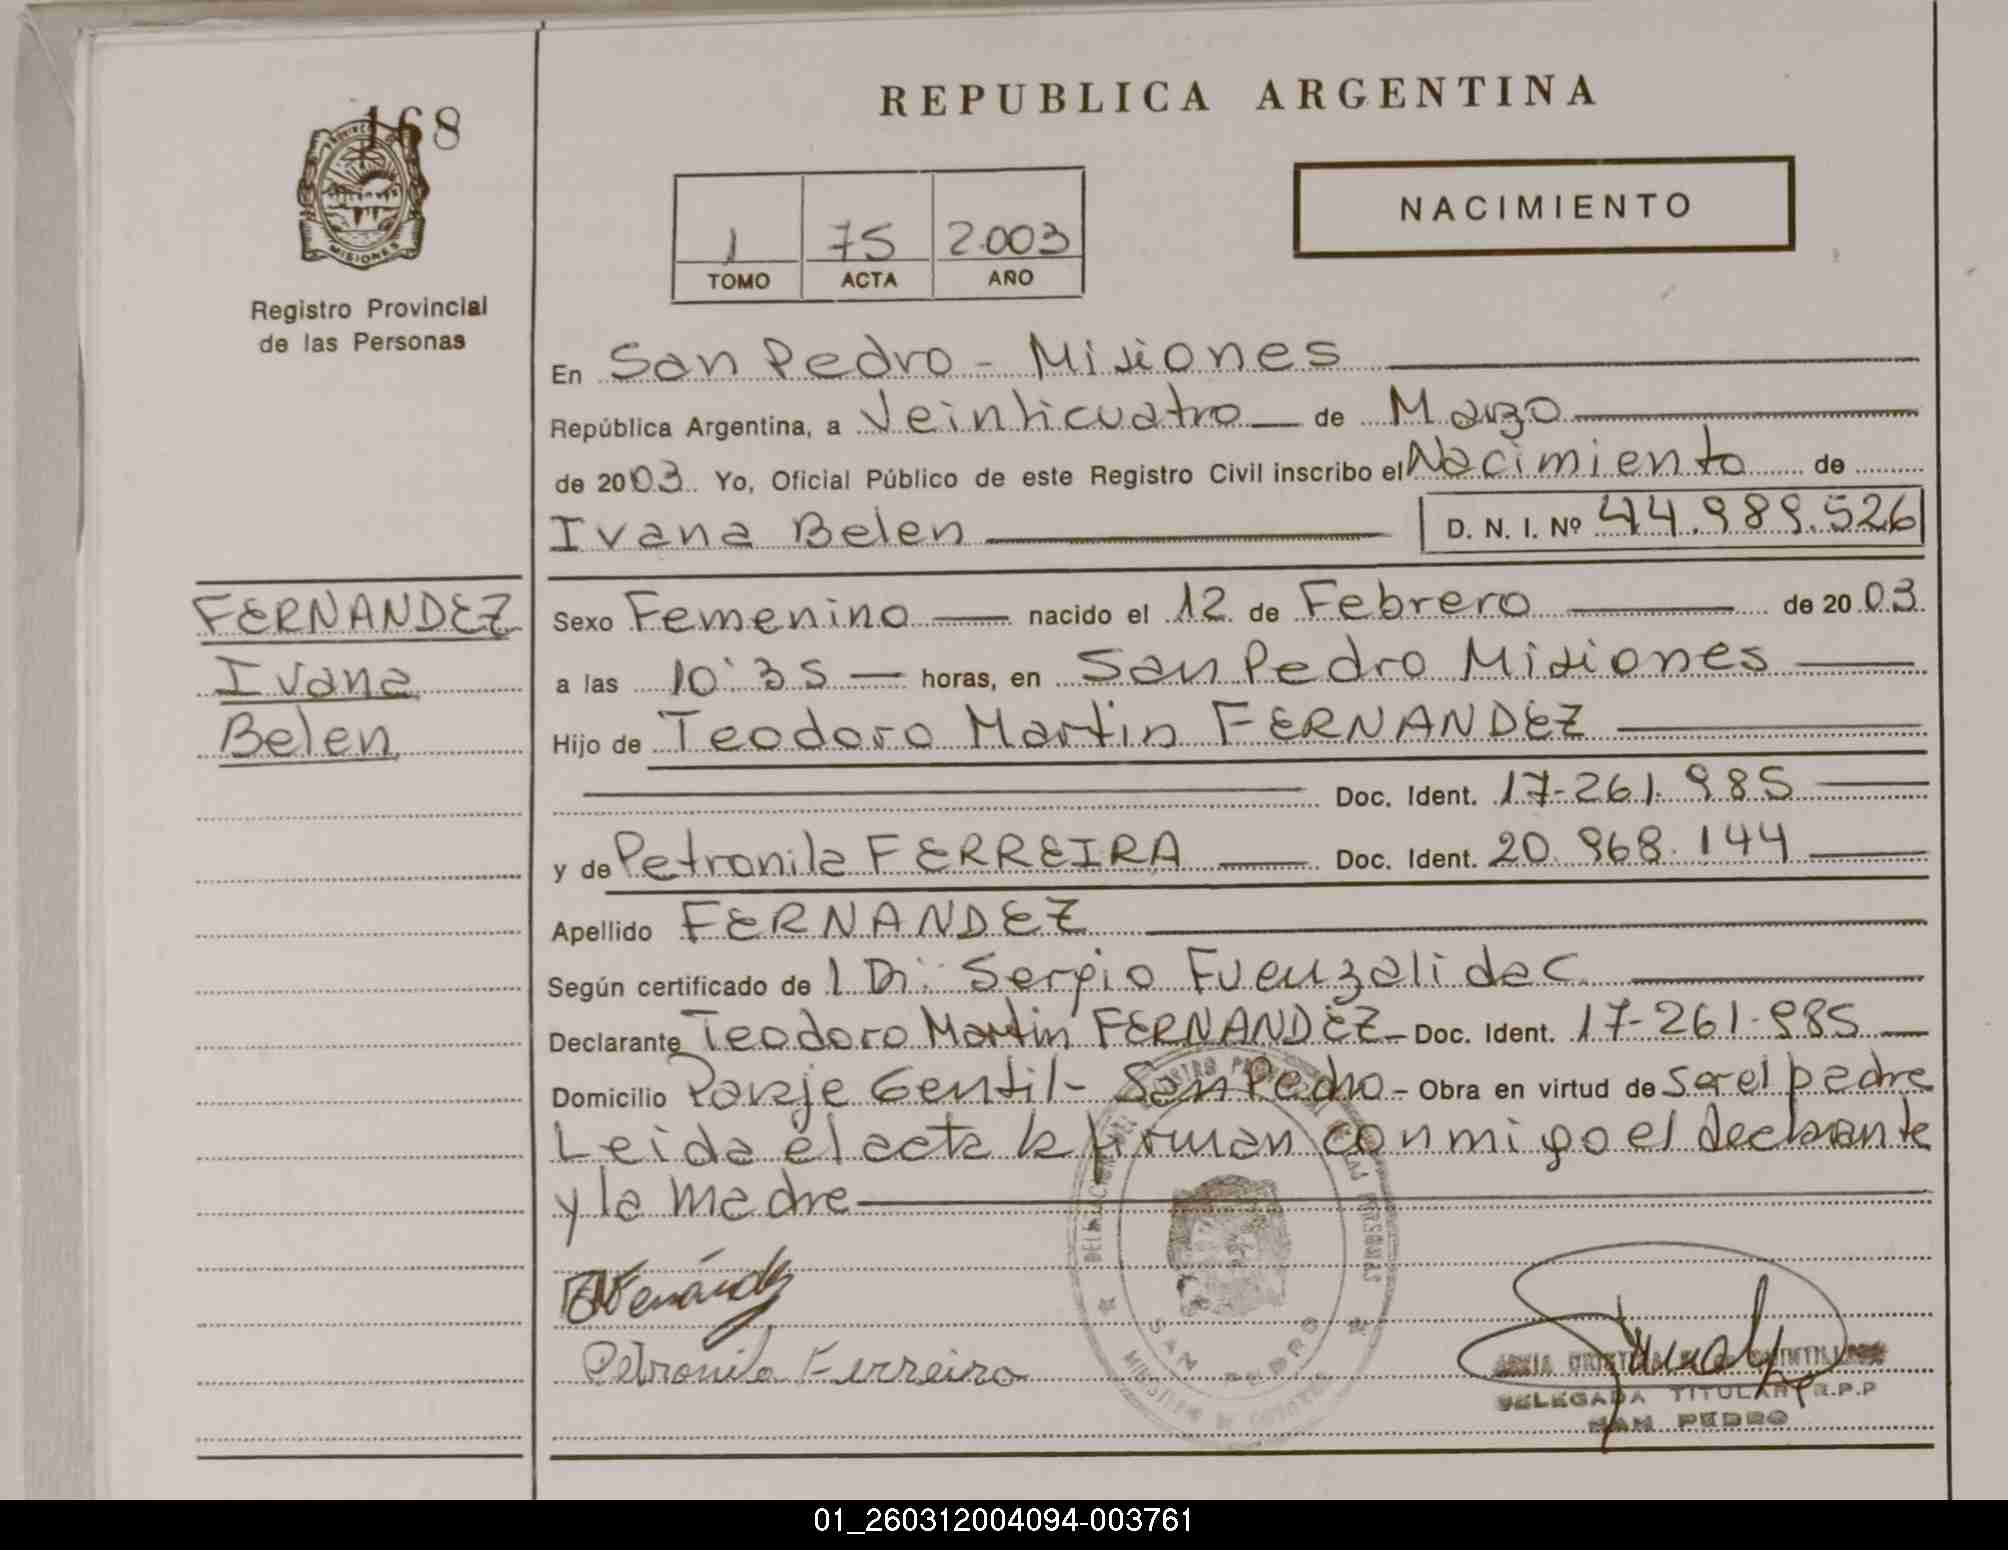 168
PROVINCIA DE
MISIONES
Registro Provincial
de las Personas
FERNANDEZ
Ivana
Belen
REPUBLICA ARGENTINA
NACIMIENTO
1 75 2.003
TOMO ACTA AÑO
En San Pedro - Misiones
República Argentina, a Veinticuatro de Marzo
de 2003 Yo, Oficial Público de este Registro Civil inscribo el Nacimiento de
Ivana Belen D. N. I. Nº 44.989.526
Sexo Femenino nacido el 12 de Febrero de 2003
a las 10:35 horas, en San Pedro Misiones
Hijo de Teodoro Martin FERNANDEZ
Doc. Ident. 17-261.985
y de Petronila FERREIRA Doc. Ident. 20.968.144
Apellido FERNANDEZ
Según certificado de Sergio Fuenzalida C.
Declarante Teodoro Martin FERNANDEZ - Doc. Ident. 17-261-985
Domicilio Paraje Gentil - San Pedro - Obra en virtud de ser el padre
Leida el acta la firman conmigo el declarante
y la madre
Fernández
Petronila Ferreira
SAN PEDRO
DELEGADA TITULAR R.P.P
SAN PEDRO
01_260312004094-003761